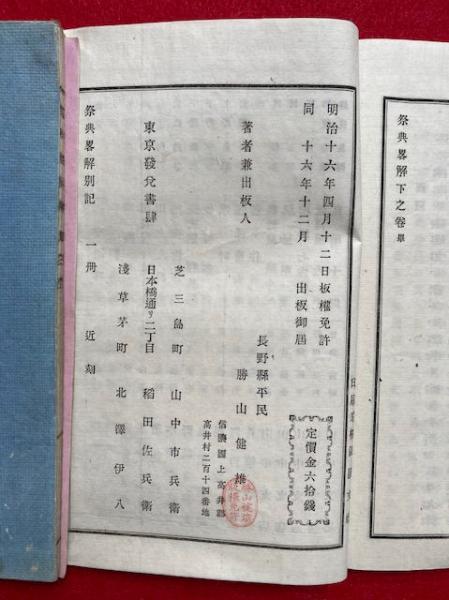 祭典畧解下之卷畢
明治十六年四月十二日板權免許
同 十六年十二月 出板御屆
定價金六拾錢
著者兼出板人
長野縣平民
勝山健雄
信濃國上高井郡
高井村二百十四番地
東京發兌書肆
芝三島町 山中市兵衛
日本橋通リ二丁目 稻田佐兵衛
淺草茅町 北澤伊八
祭典畧解別記 一冊 近刻